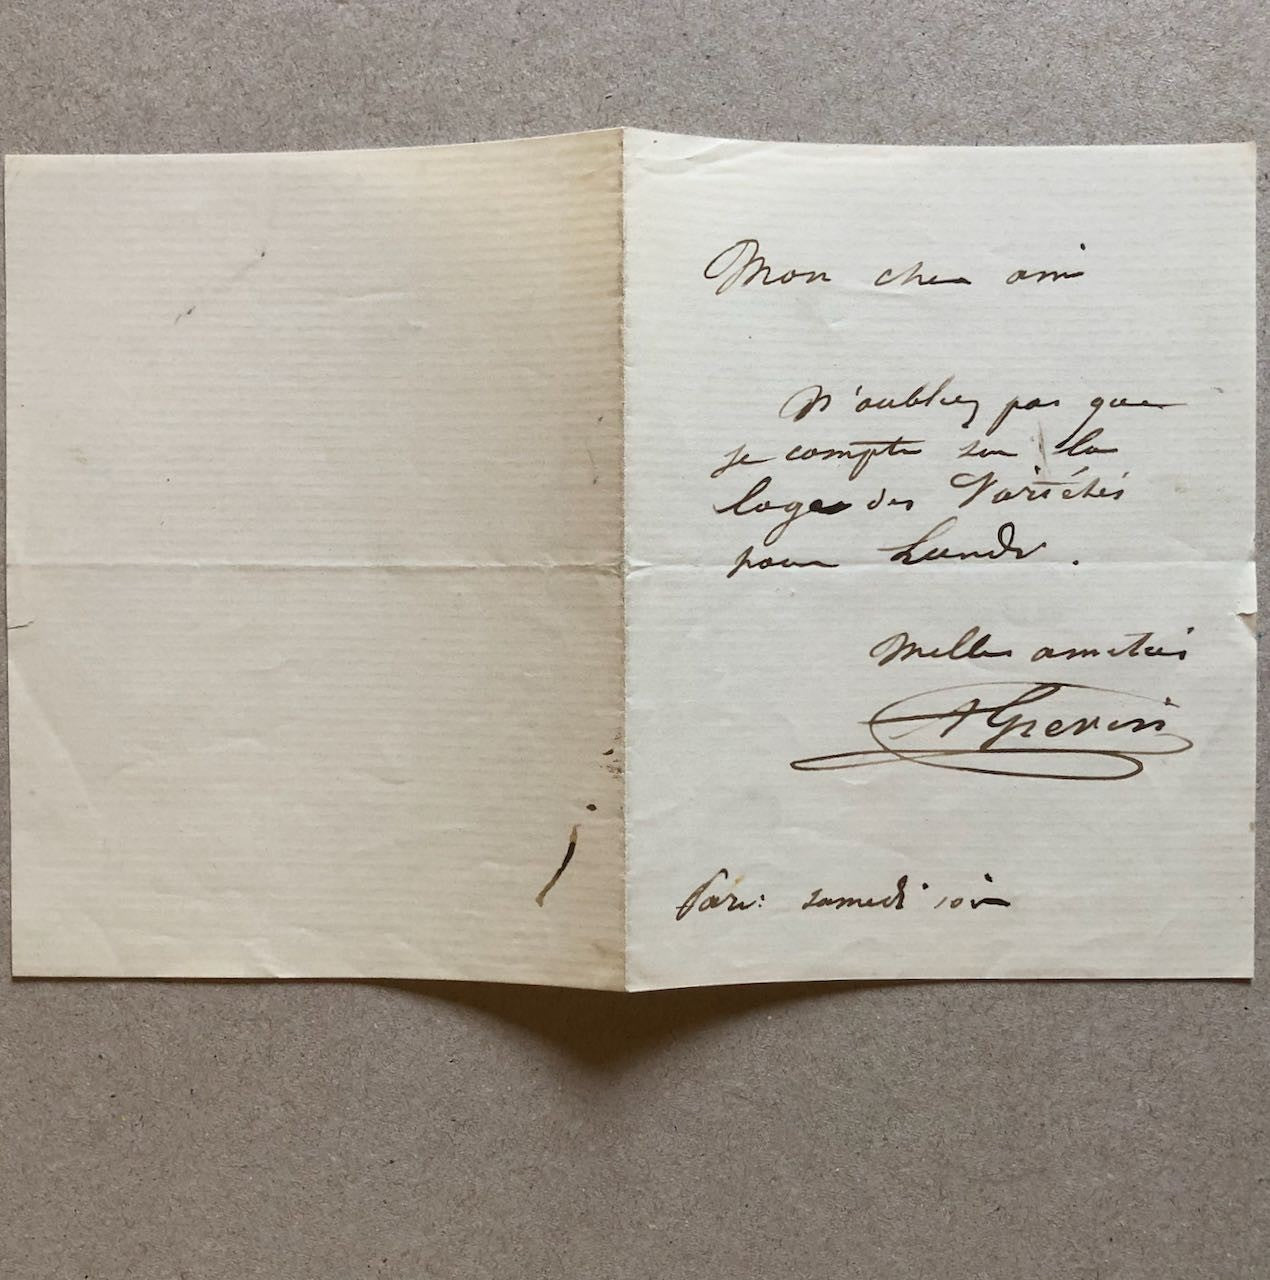 Mon cher ami
N'oubliez pas que
je compte sur la
loge des Variétés
pour Lundi.
Milles amitiés
A Grévin
Paris samedi soir